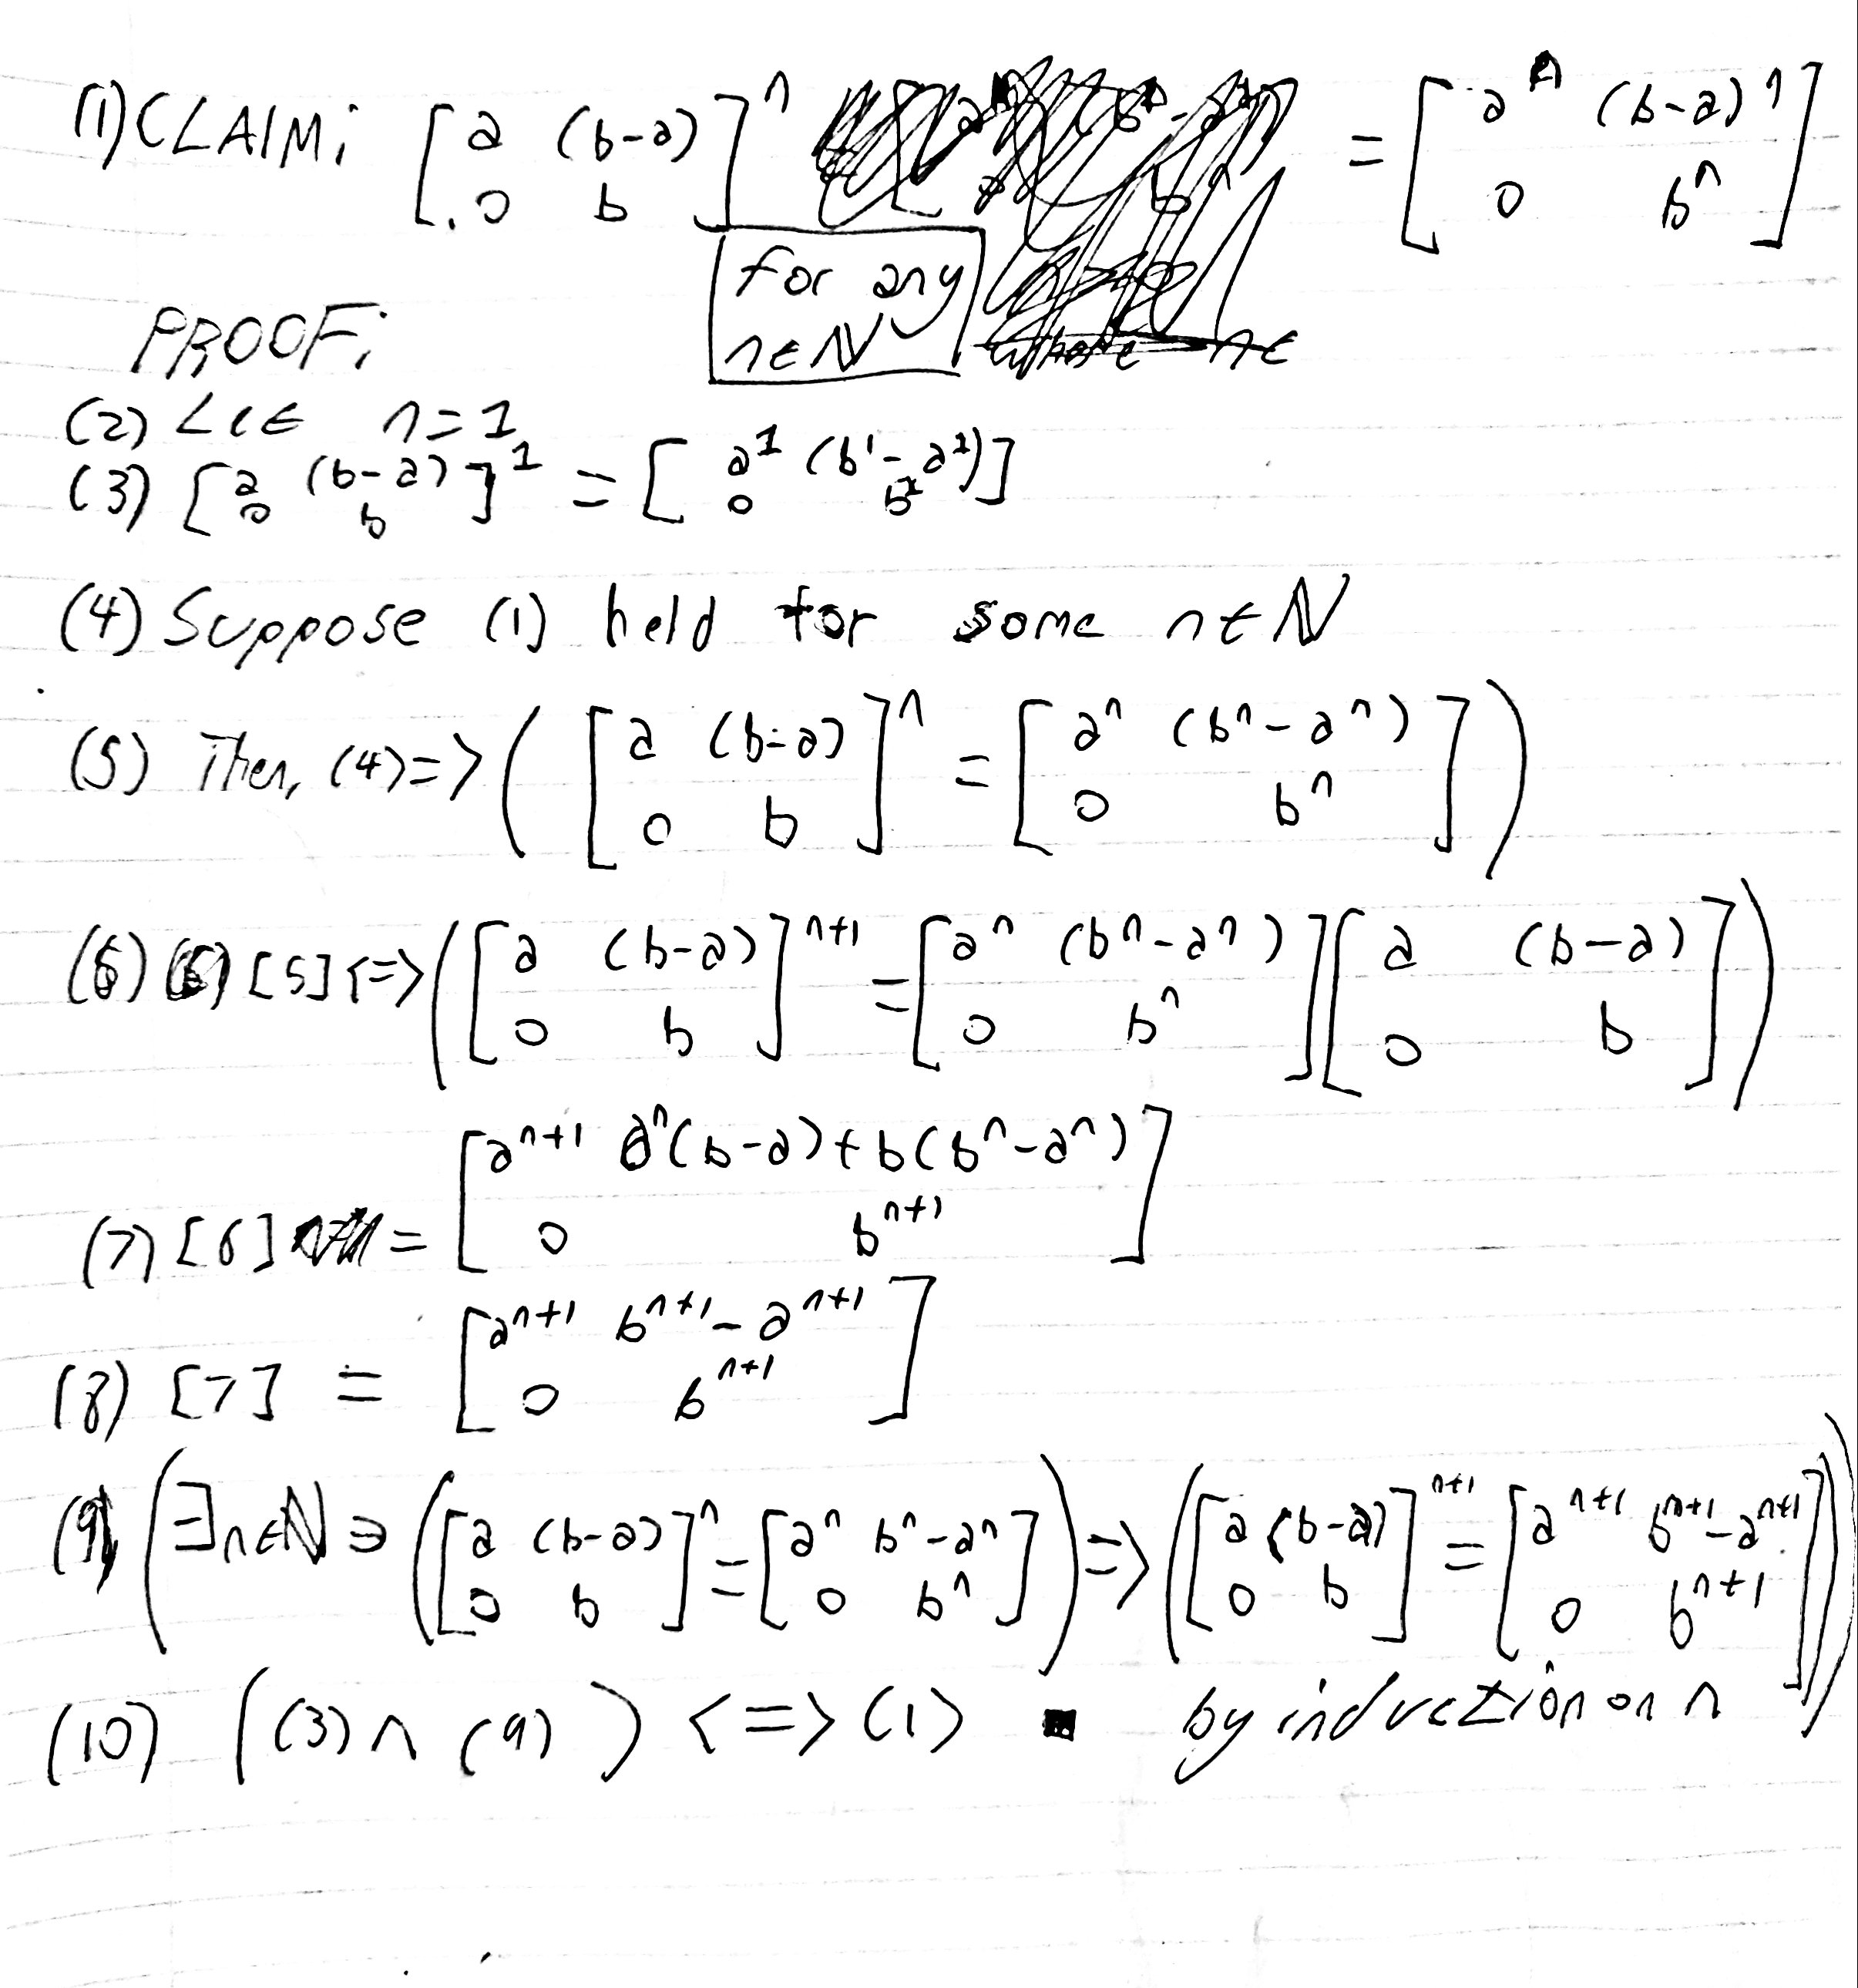 (1) CLAIM: [ a (b-a) ; 0 b ]^n = [ a^n (b-a)^n ; 0 b^n ]
for any n∈ℕ
PROOF:
(2) Let n=1
(3) [ a (b-a) ; 0 b ]^1 = [ a^1 (b^1-a^1) ; 0 b^1 ]
(4) Suppose (1) held for some n∈ℕ
(5) Then, (4)=> ( [ a (b-a) ; 0 b ]^n = [ a^n (b^n-a^n) ; 0 b^n ] )
(6) [5] <=> ( [ a (b-a) ; 0 b ]^{n+1} = [ a^n (b^n-a^n) ; 0 b^n ] [ a (b-a) ; 0 b ] )
(7) [6] = [ a^{n+1} a^n(b-a)+b(b^n-a^n) ; 0 b^{n+1} ]
(8) [7] = [ a^{n+1} b^{n+1}-a^{n+1} ; 0 b^{n+1} ]
(9) ( ∃n∈ℕ ∋ ( [ a (b-a) ; 0 b ]^n = [ a^n b^n-a^n ; 0 b^n ] ) => ( [ a (b-a) ; 0 b ]^{n+1} = [ a^{n+1} b^{n+1}-a^{n+1} ; 0 b^{n+1} ] ) )
(10) ( (3) ∧ (9) ) <=> (1) ■ by induction on n